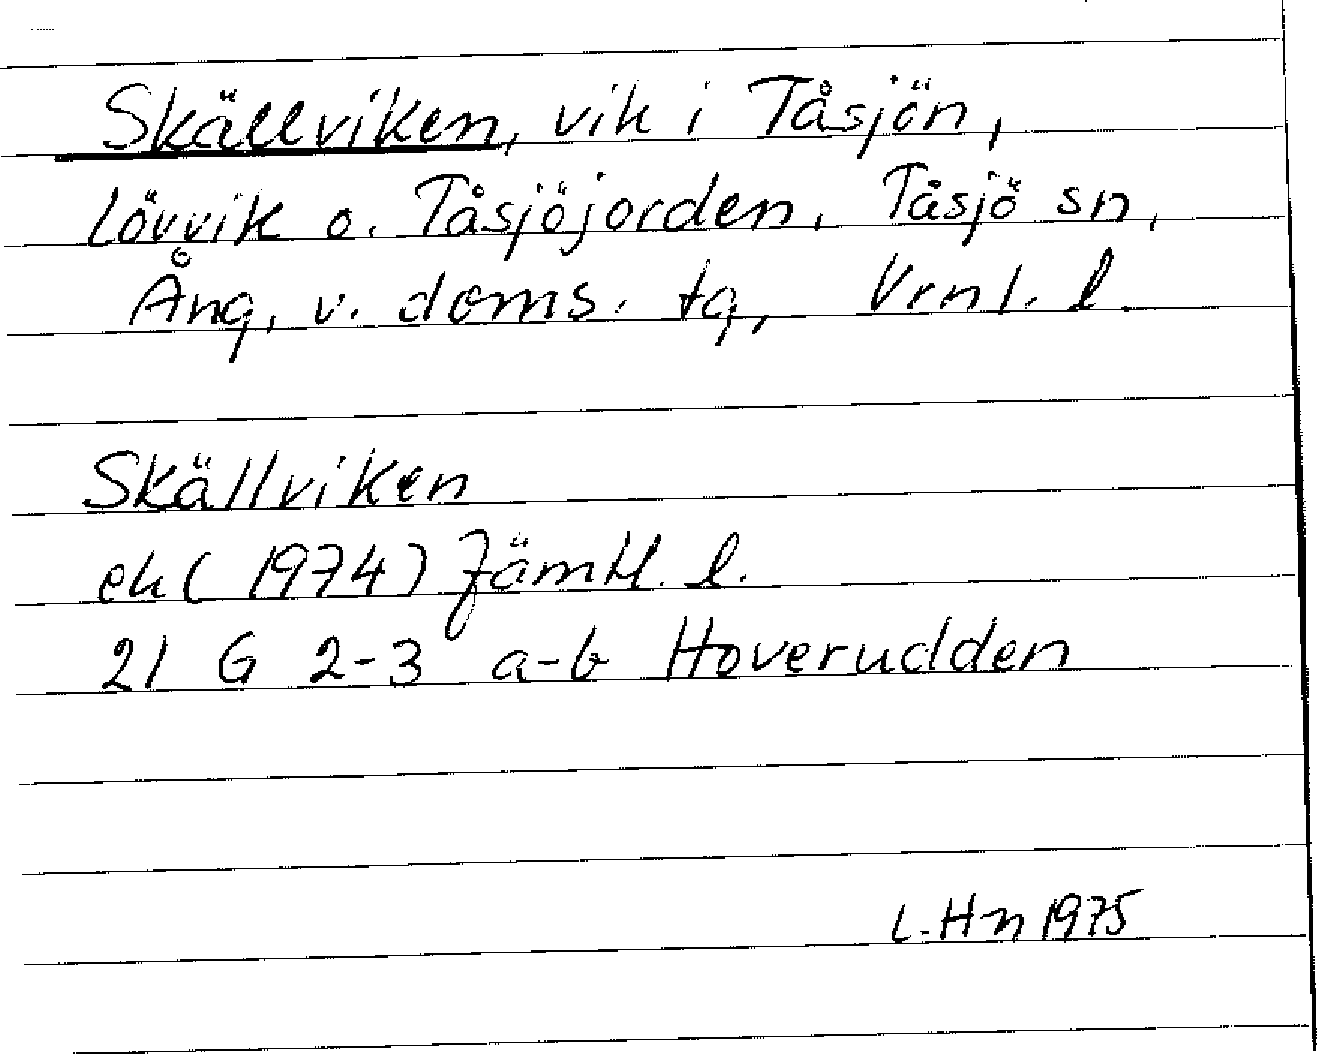 Skällviken, vik i Tåsjön,
Lövvik o. Tåsjöjorden, Tåsjö sn,
Ång. v. doms. tg, Vrnl. l.
Skällviken
ek (1974) Jämtl. l.
21 G 2-3 a-b Hoverudden
L. H-n 1975